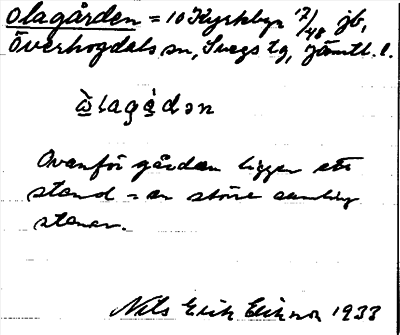 Olagården = 10 Kyrkbyn 17/48 jb,
Överhogdals sn, Svegs tg, Jämtl. l.
ὼ̱lagå̀dən
Ovanför gården ligger ett
stend = en större samling
stenar.
Nils Erik Eriksson 1933